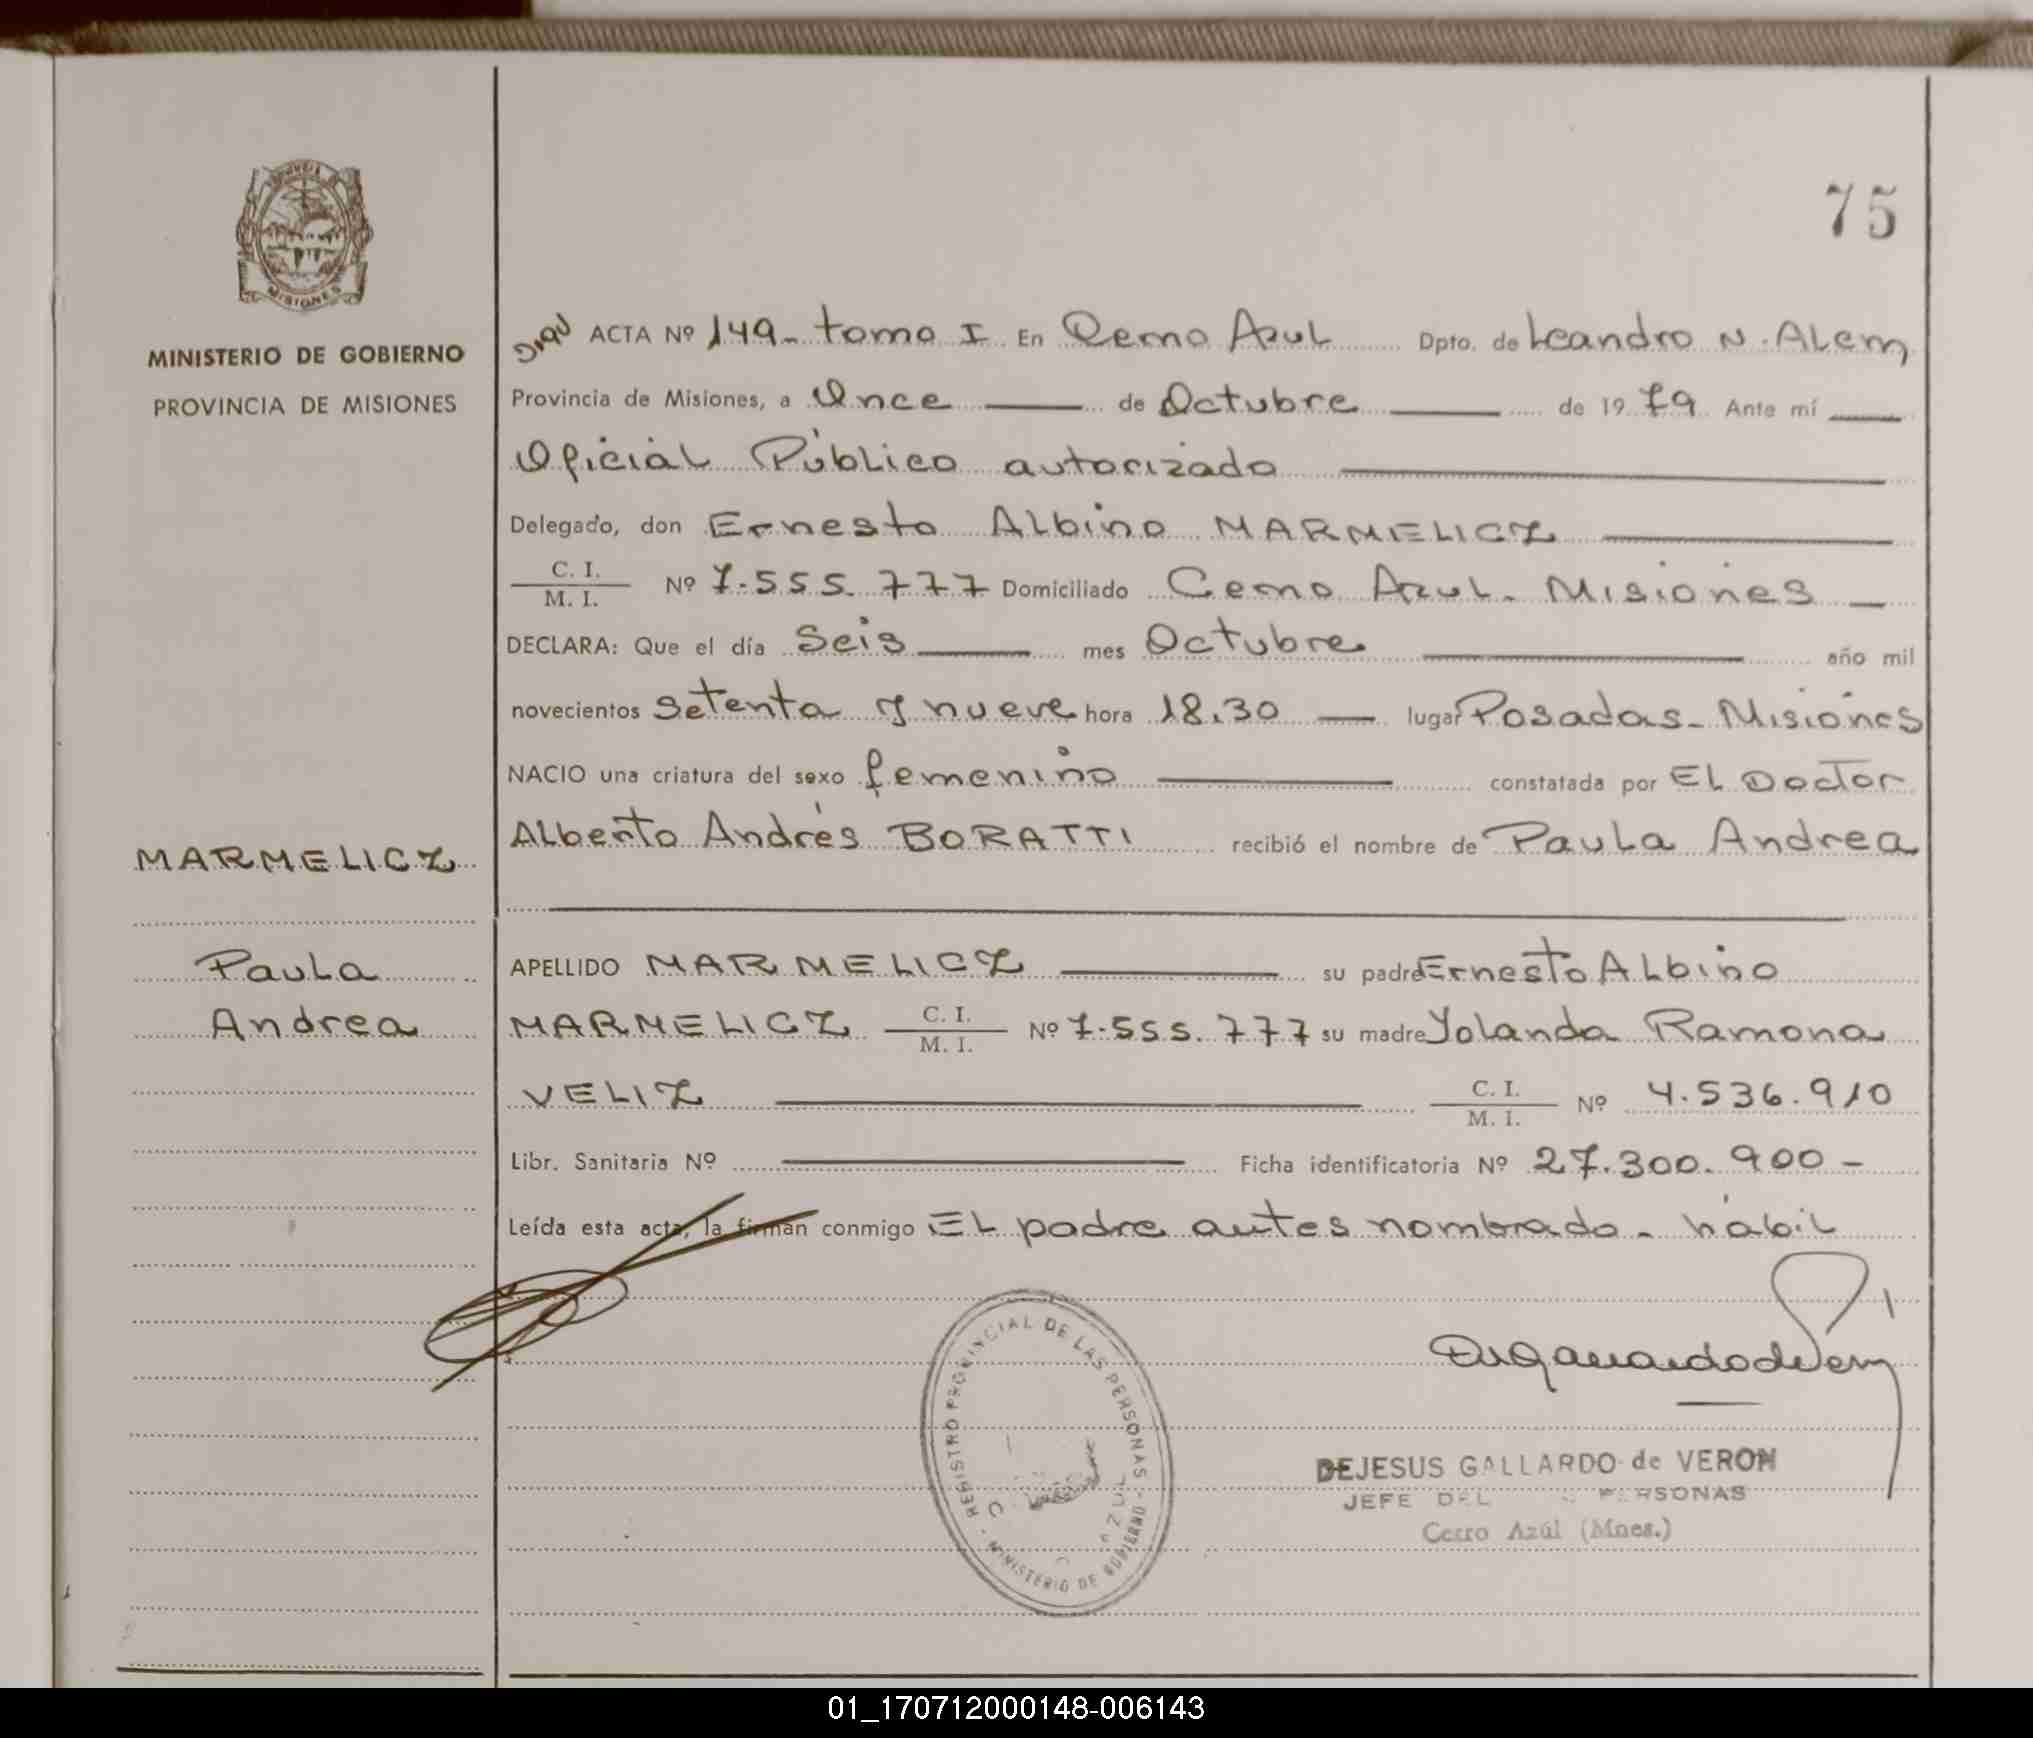 75
MISIONES
MINISTERIO DE GOBIERNO
PROVINCIA DE MISIONES
MARMELICZ
Paula
Andrea
ACTA Nº 149 - tomo I En Cerro Azul Dpto. de Leandro N. Alem
Provincia de Misiones, a Once de Octubre de 1979 Ante mí
Oficial Público autorizado
Delegado, don Ernesto Albino MARMELICZ
C. I.
M. I. Nº 7.555.777 Domiciliado Cerro Azul - Misiones
DECLARA: Que el día Seis mes Octubre año mil
novecientos setenta y nueve hora 18.30 lugar Posadas - Misiones
NACIO una criatura del sexo femenino constatada por El Doctor
Alberto Andrés BORATTI recibió el nombre de Paula Andrea
APELLIDO MARMELICZ su padre Ernesto Albino
MARMELICZ C. I. M. I. Nº 7.555.777 su madre Yolanda Ramona
VELIZ C. I. M. I. Nº 4.536.910
Libr. Sanitaria Nº Ficha identificatoria Nº 27.300.900 -
Leída esta acta, la firman conmigo El padre antes nombrado - hábil
REGISTRO PROVINCIAL DE LAS PERSONAS - MINISTERIO DE GOBIERNO -
DEJESUS GALLARDO de VERON
JEFE DEL PERSONAS
Cerro Azúl (Mnes.)
01_170712000148-006143